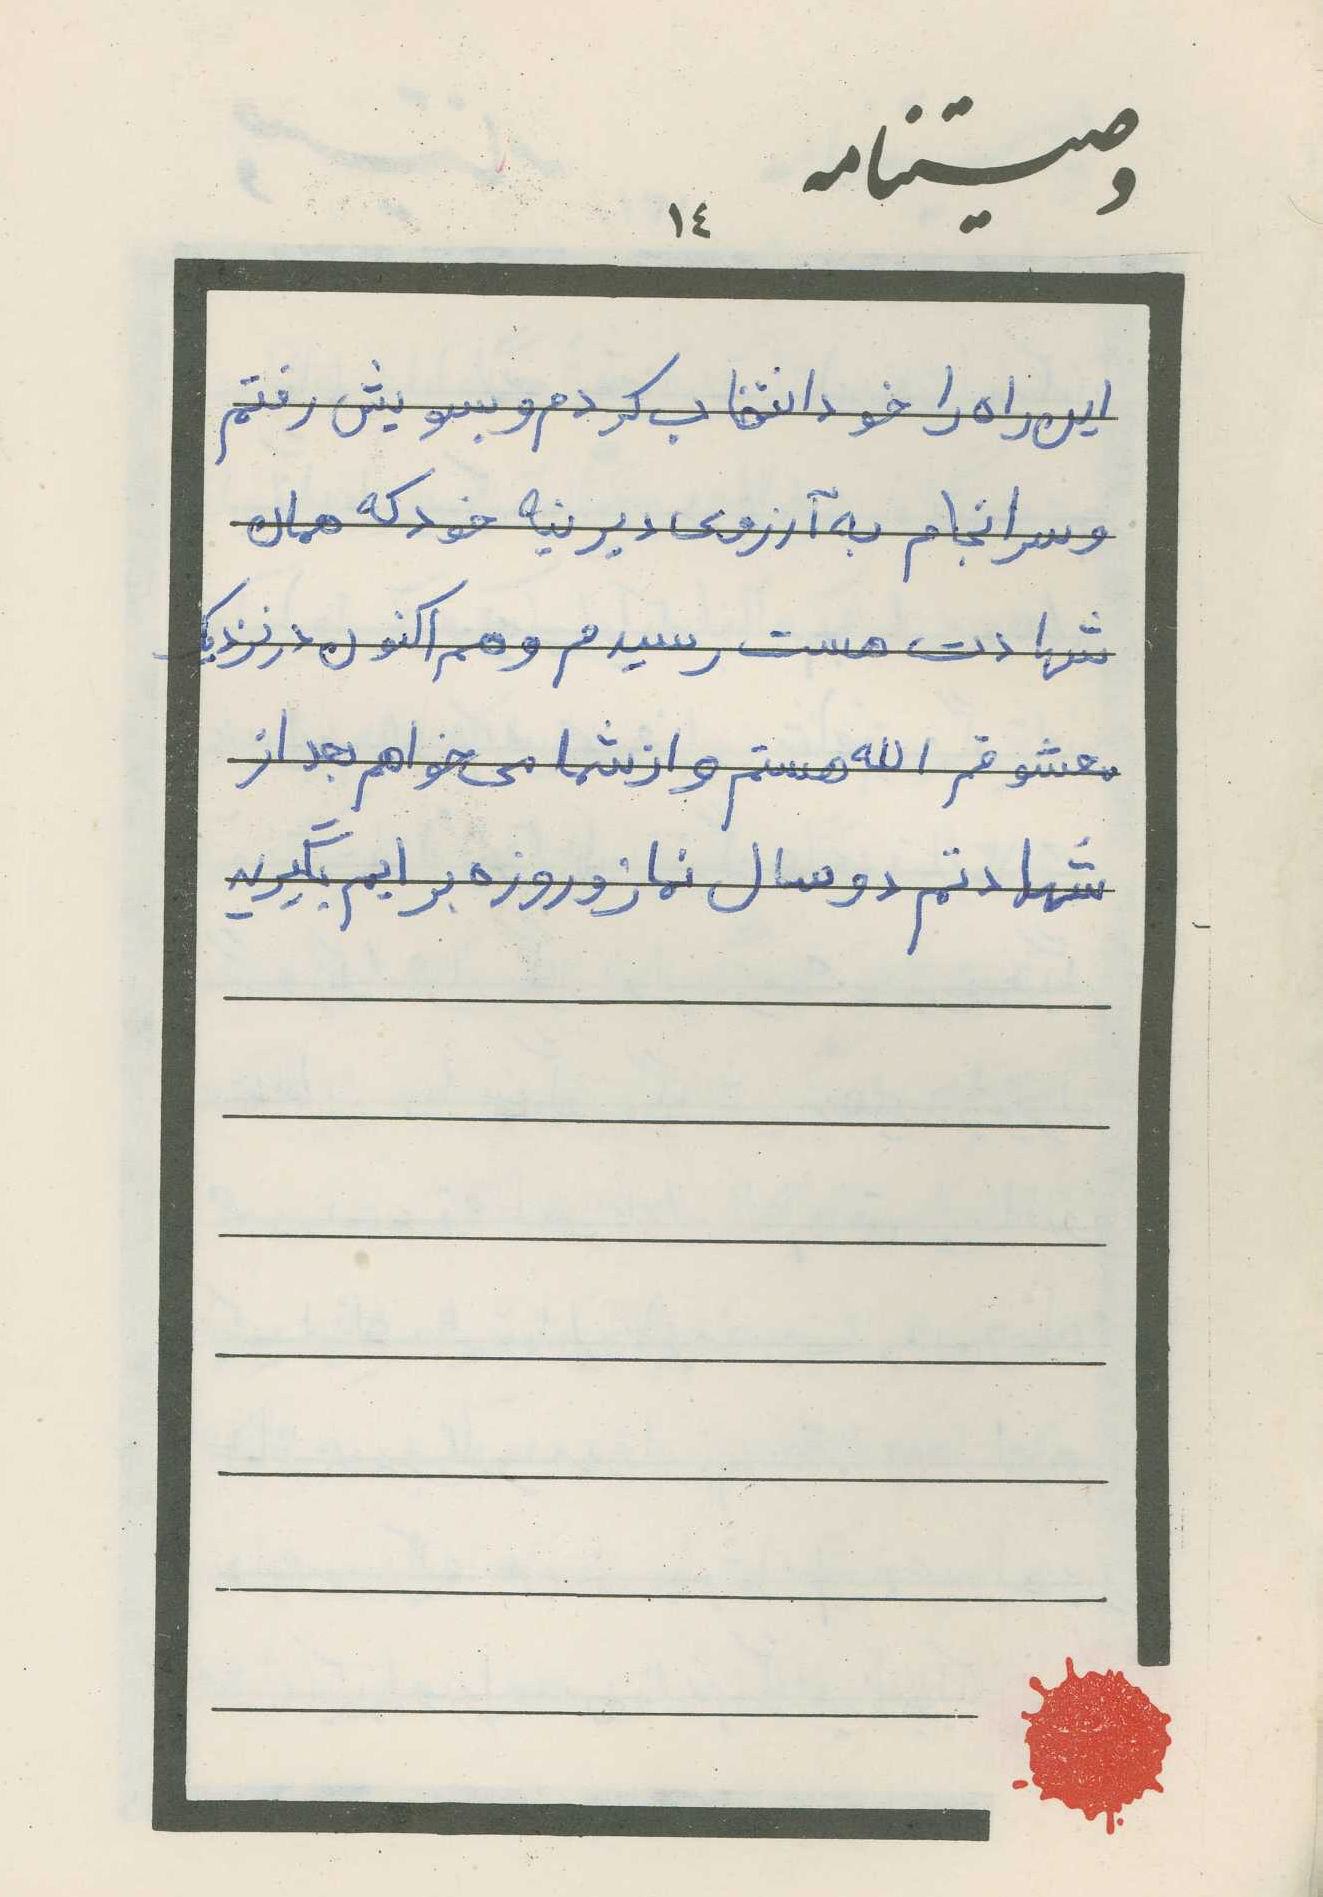 وصیتنامه
١٤
این راه را خود انتخاب کردم و بسویش رفتم
و سرانجام به آرزوی دیرینه خود که همان
شهادت هست رسیدم و هم اکنون در نزدیک
معشوقم الله هستم و از شما می خواهم بعد از
شهادتم دو سال نماز و روزه برایم بگیرید